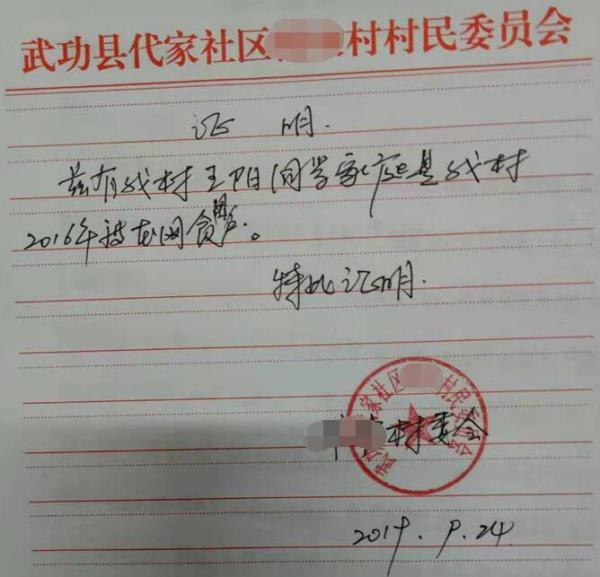 武功县代家社区 村村民委员会
证 明.
兹有我村王阳同学家庭是我村
2016年 贫困户。
特此证明.
家社区 村民委员会
村委会
2019.9.24